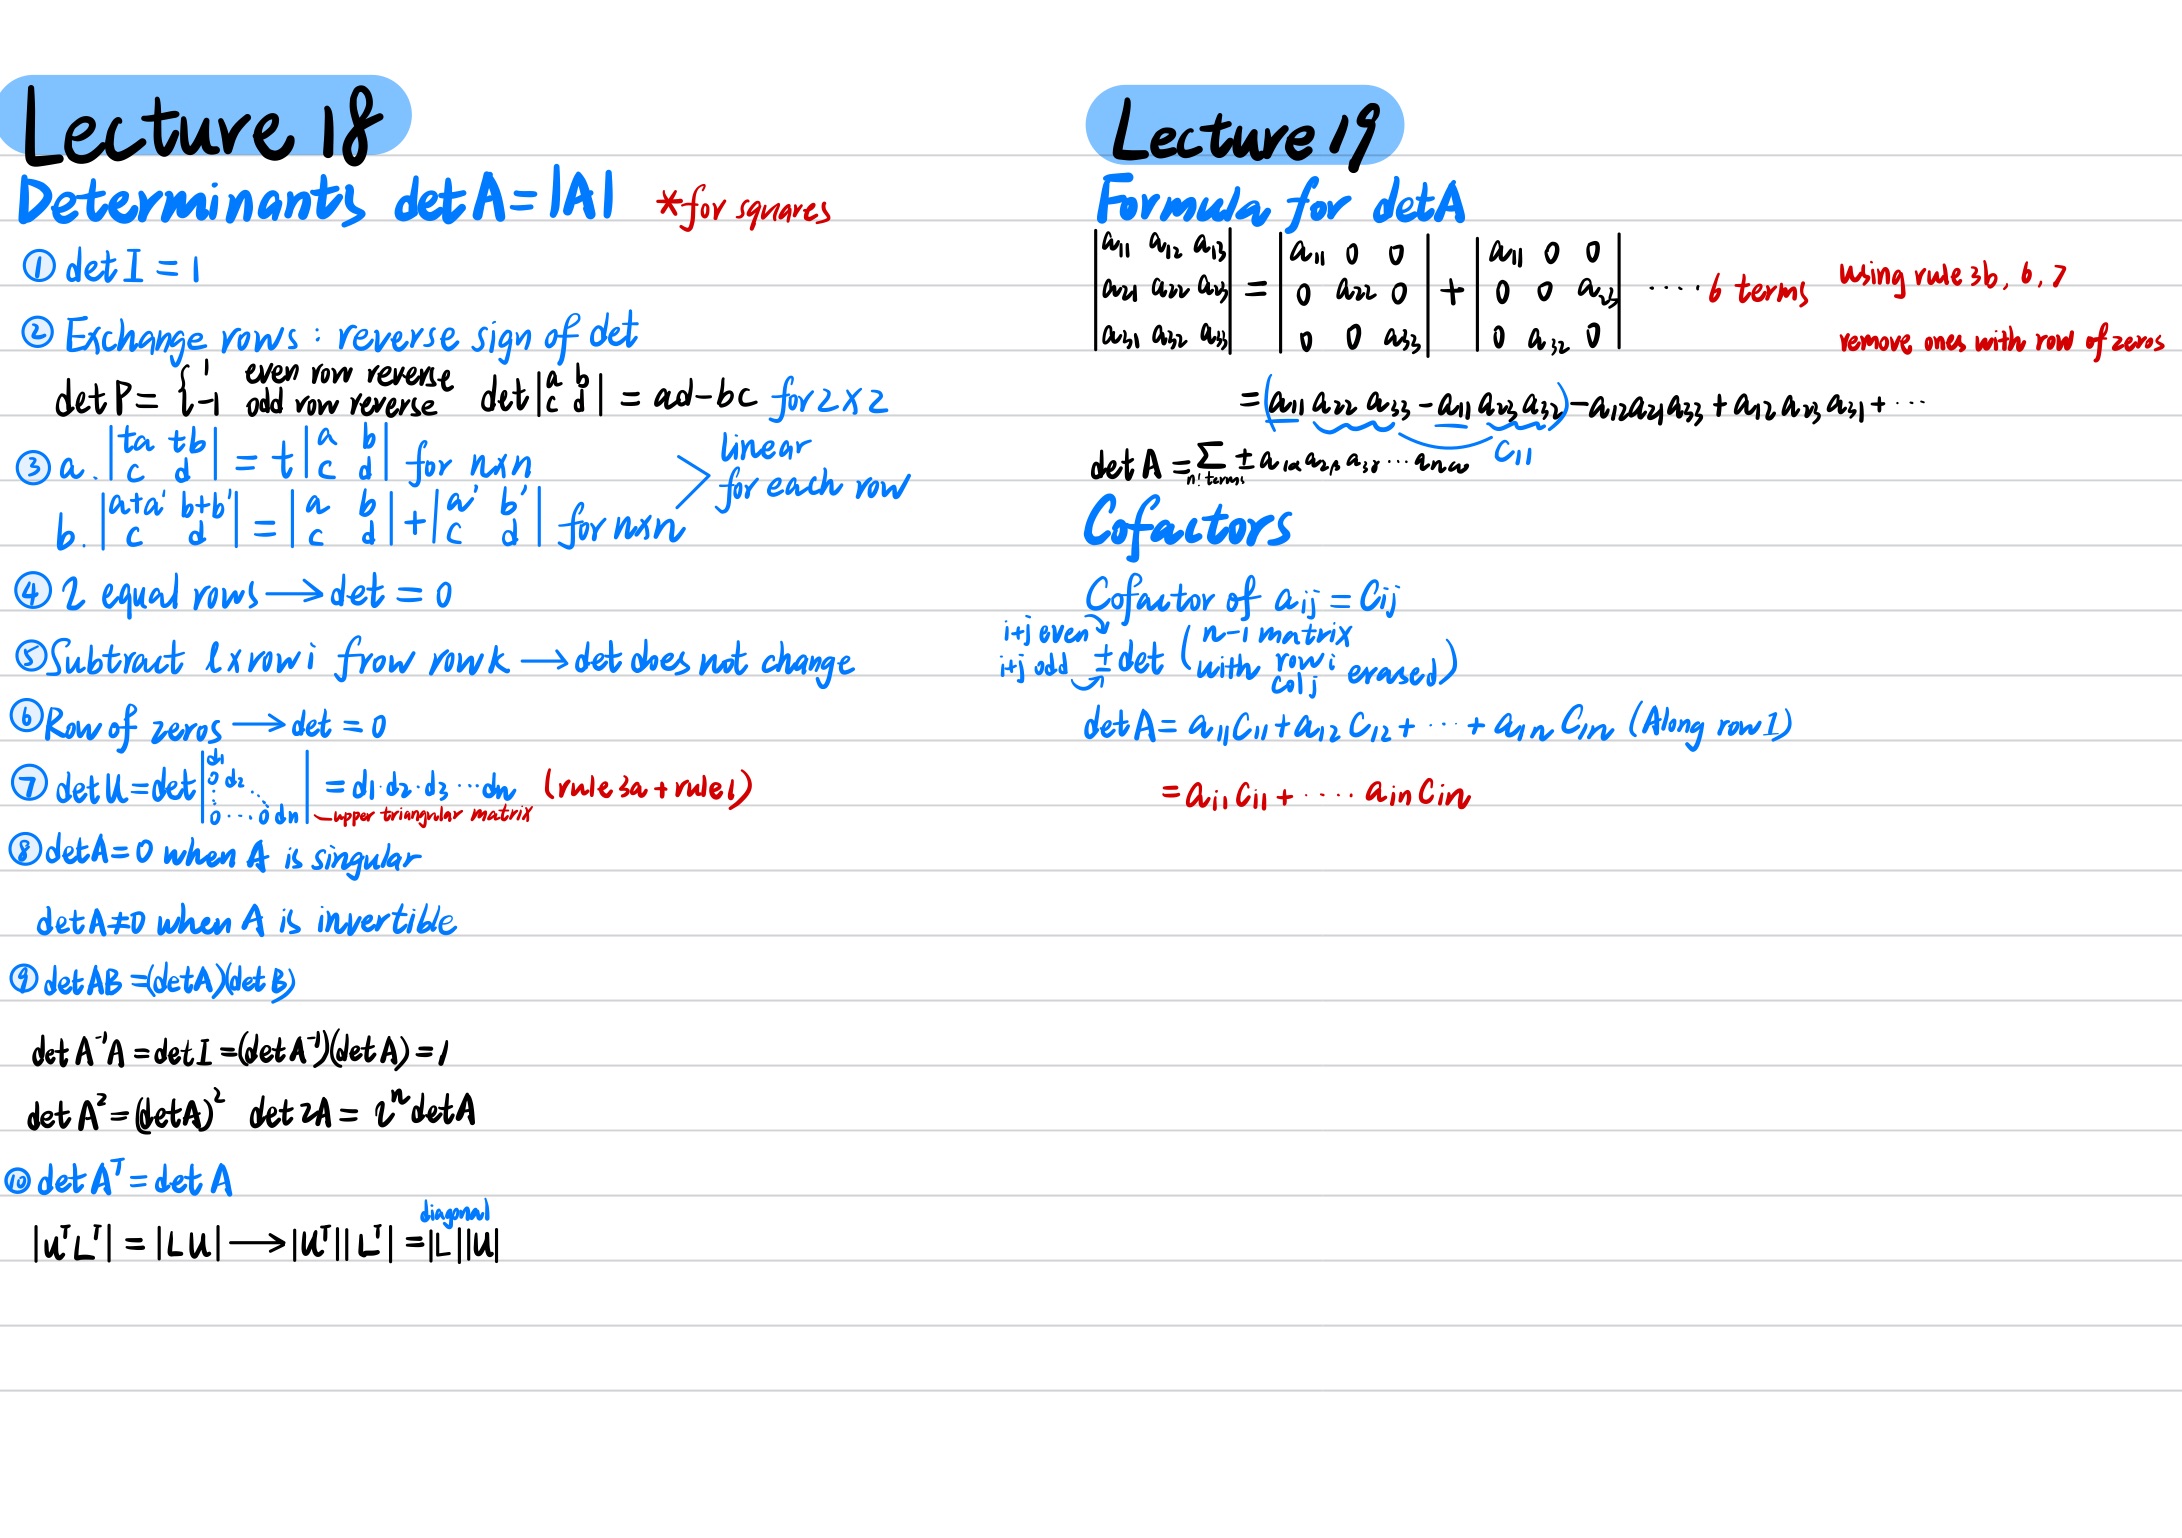 Lecture 18
Determinants det A = |A| *for squares
① det I = 1
② Exchange rows : reverse sign of det
det P = { 1 even row reverse
-1 odd row reverse
det |a b
c d| = ad-bc for 2x2
③ a. |ta tb
c d| = t |a b
c d| for nxn
b. |a+a' b+b'
c d| = |a b
c d| + |a' b'
c d| for nxn
> linear
for each row
④ 2 equal rows → det = 0
⑤ Subtract l x row i frow row k → det does not change
⑥ Row of zeros → det = 0
⑦ det U = det |d1
0 d2
⋮ ⋱
0 ⋯ 0 dn| = d1·d2·d3 ⋯dn (rule 3a + rule 1)
upper triangular matrix
⑧ det A = 0 when A is singular
det A ≠ 0 when A is invertible
⑨ det AB = (det A)(det B)
det A⁻¹A = det I = (det A⁻¹)(det A) = 1
det A² = (det A)² det 2A = 2ⁿ det A
⑩ det Aᵀ = det A
diagonal
|UᵀLᵀ| = |LU| → |Uᵀ||Lᵀ| = |L||U|
Lecture 19
Formula for det A
|a11 a12 a13
a21 a22 a23
a31 a32 a33| = |a11 0 0
0 a22 0
0 0 a33| + |a11 0 0
0 0 a23
0 a32 0| ···· 6 terms
using rule 3b, 6, 7
remove ones with row of zeros
= (a11 a22 a33 - a11 a23 a32) - a12 a21 a33 + a12 a23 a31 + ···
C11
det A = Σ ± a1α a2β a3γ ··· anω
n! terms
Cofactors
Cofactor of aij = Cij
i+j even
i+j odd
± det (n-1 matrix
with row i
col j erased)
det A = a11 C11 + a12 C12 + ··· + a1n C1n (Along row 1)
= ai1 Ci1 + ····· ain Cin